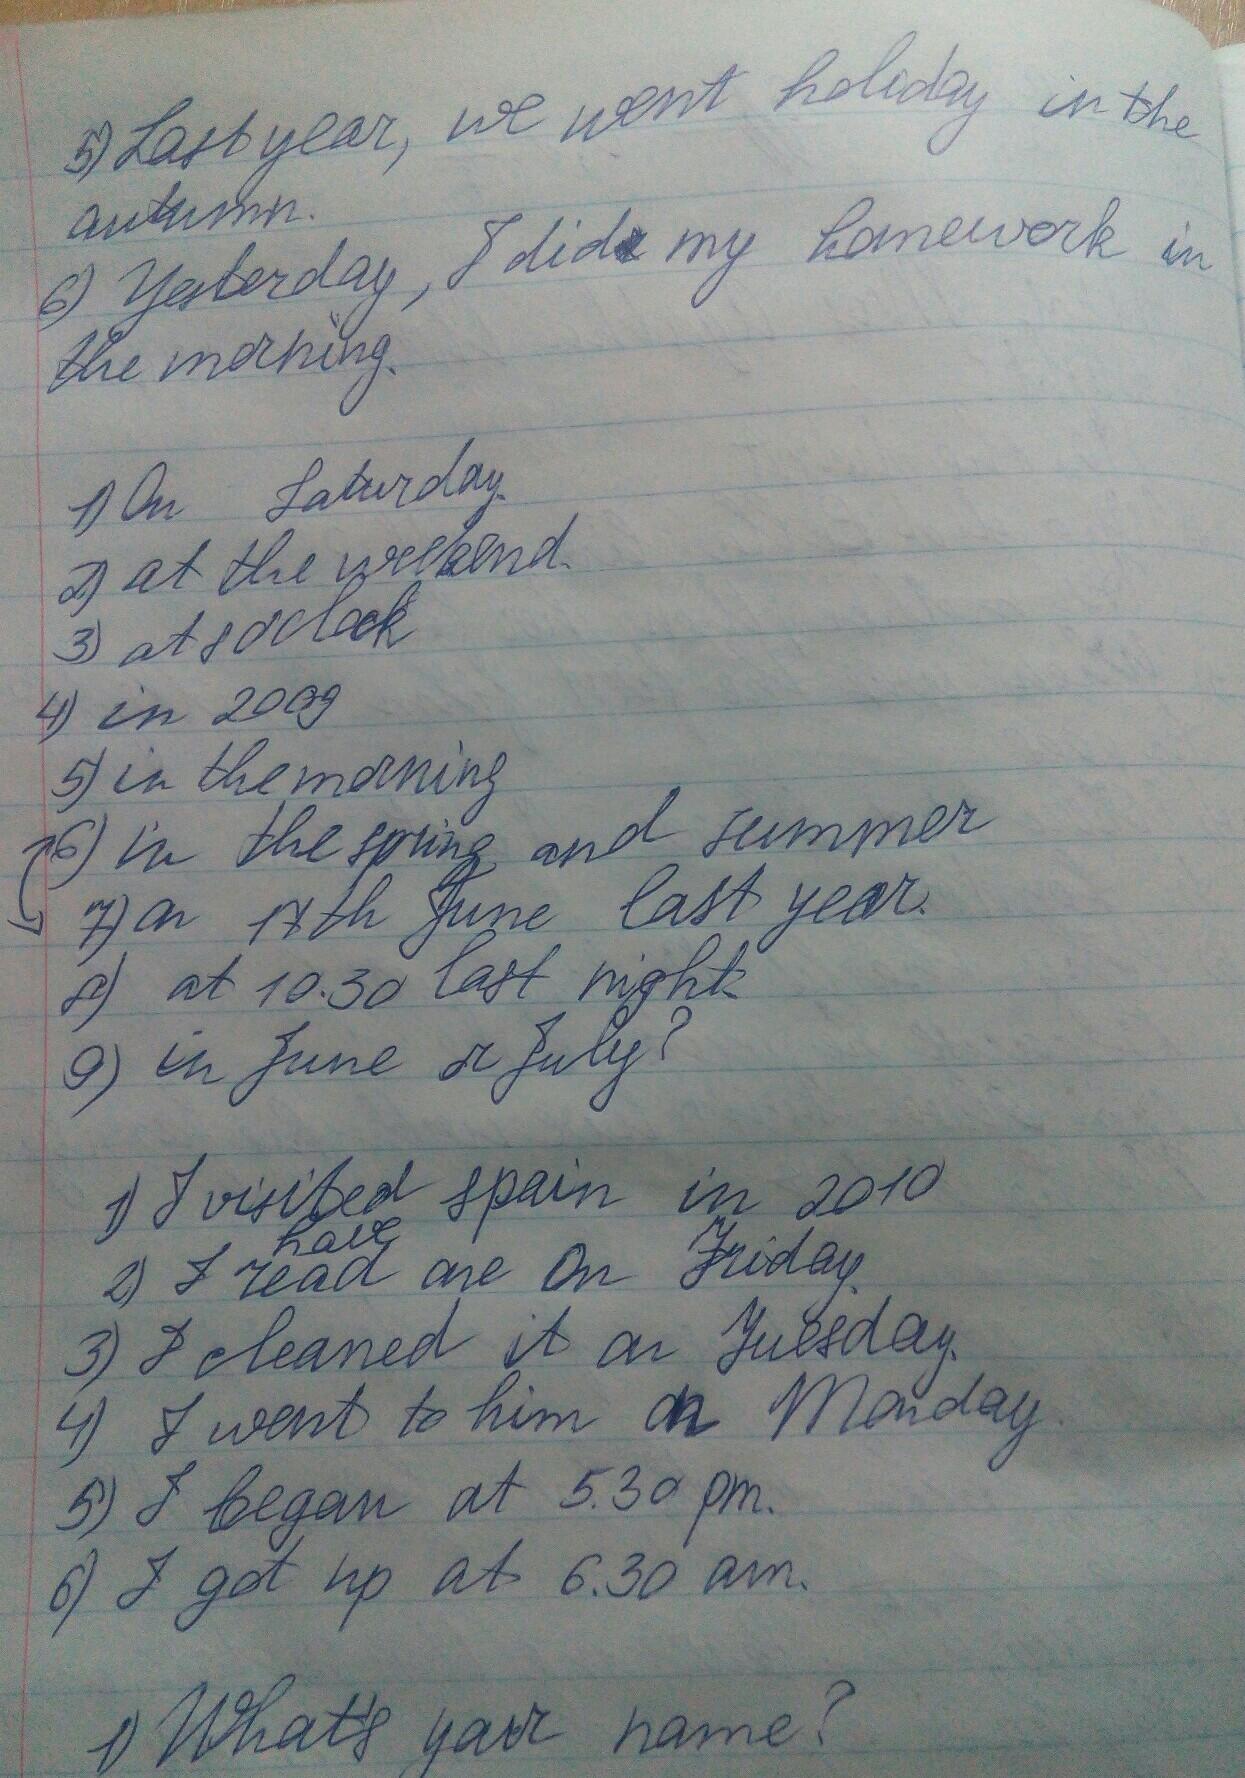 5) Last year, we went holiday in the
autumn.
6) Yesterday, I did my homework in
the morning.
1) On Saturday.
2) at the weekend.
3) at 8 o'clock
4) in 2009
5) in the morning
6) in the spring and summer
7) on 17th June last year.
8) at 10.30 last night
9) in June or July?
1) I visited spain in 2010
have
2) I read one on Friday.
3) I cleaned it on Tuesday.
4) I went to him on Monday.
5) I began at 5.30 pm.
6) I got up at 6.30 am.
1) What's your name?